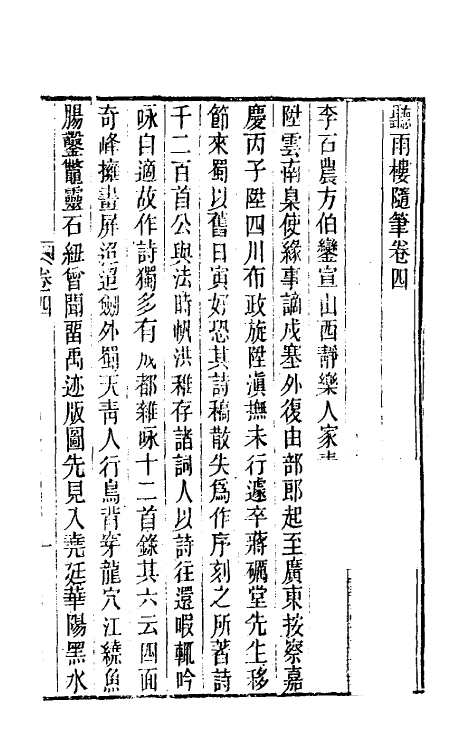 聽雨樓隨筆卷四
李石農方伯鑾宣山西靜樂人家
陞雲南臬使緣事謫戍塞外復由部郎起至廣東按察嘉
慶丙子陞四川布政旋陞滇撫未行遽卒蔣礪堂先生移
節來蜀以舊日寅好恐其詩稿散失爲作序刻之所著詩
千二百首公與法時帆洪稚存諸詞人以詩往還暇輒吟
咏自適故作詩獨多有成都雜咏十二首錄其六云四面
奇峰擁畫屏迢迢劍外蜀天靑人行鳥背穿龍穴江繞魚
腸鑿鼈靈石紐曾聞畱禹迹版圖先見入堯廷華陽黑水
卷四
一